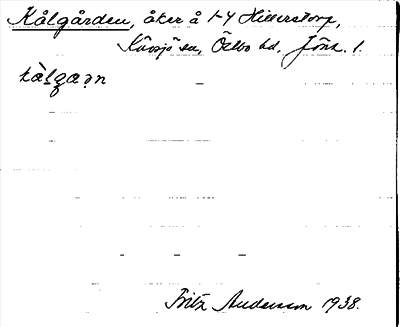 Kålgården, åker å 1-4 Hillerstorp,
Kävsjö sn, Östbo hd, Jönk. l.
kålgaṛn
Fritz Andersson 1938.